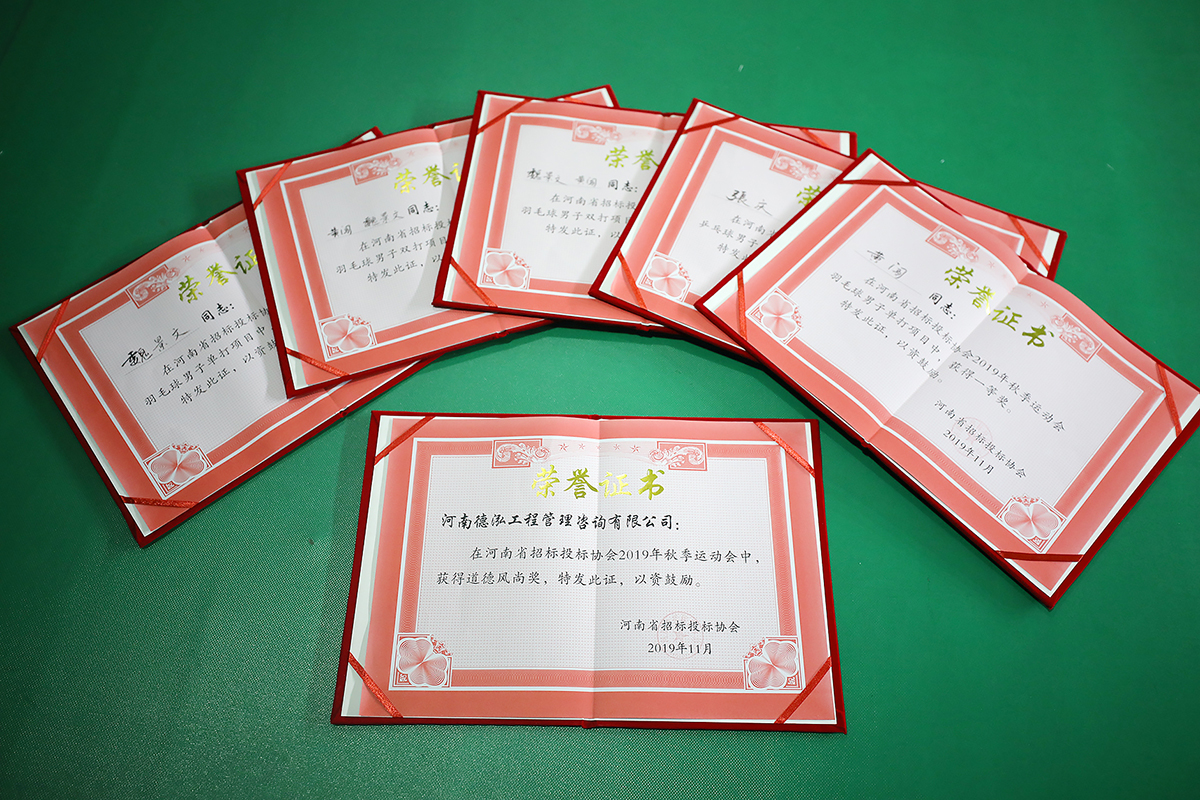 荣誉证书
魏景文 同志:
在河南省招标投标协
羽毛球男子单打项目中
特发此证,以资鼓
荣誉证
黄闯 魏景文同志:
在河南省招标投
羽毛球男子双打项目
特发此证,以
荣誉
魏景文 黄闯 同志:
在河南省招标投
羽毛球男子双打项目
特发此证,以
荣
在河南省招
乒乓球男子
特发此
荣誉证书
黄闯 同志:
在河南省招标投标协会2019年秋季运动会
羽毛球男子单打项目中,获得一等奖。
特发此证,以资鼓励。
河南省招标投标协会
2019年11月
荣誉证书
河南德泓工程管理咨询有限公司:
在河南省招标投标协会2019年秋季运动会中,
获得道德风尚奖,特发此证,以资鼓励。
河南省招标投标协会
2019年11月